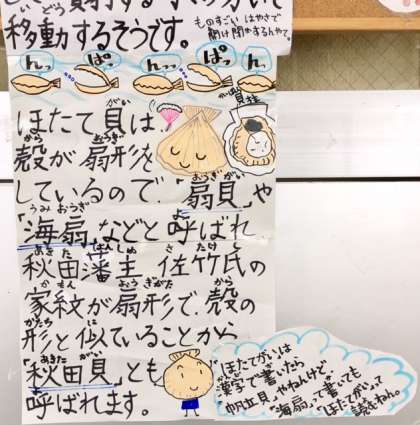 噴射する水の力で
移動するそうです。
ものすごいはやさで
開け閉めするんやで。
んっ ぱっ んっ ぱっ んっ
ほたて貝は、
殻が扇形を
しているので、「扇貝」や
「海扇」などと呼ばれ
秋田藩主 佐竹氏の
家紋が扇形で、殻の
形と似ていることから
「秋田貝」とも
呼ばれます。
貝柱
ほたてがいは
漢字で書いたら
帆立貝やねんけど、
"海扇"って書いても
ほたてがいって
読むねん。